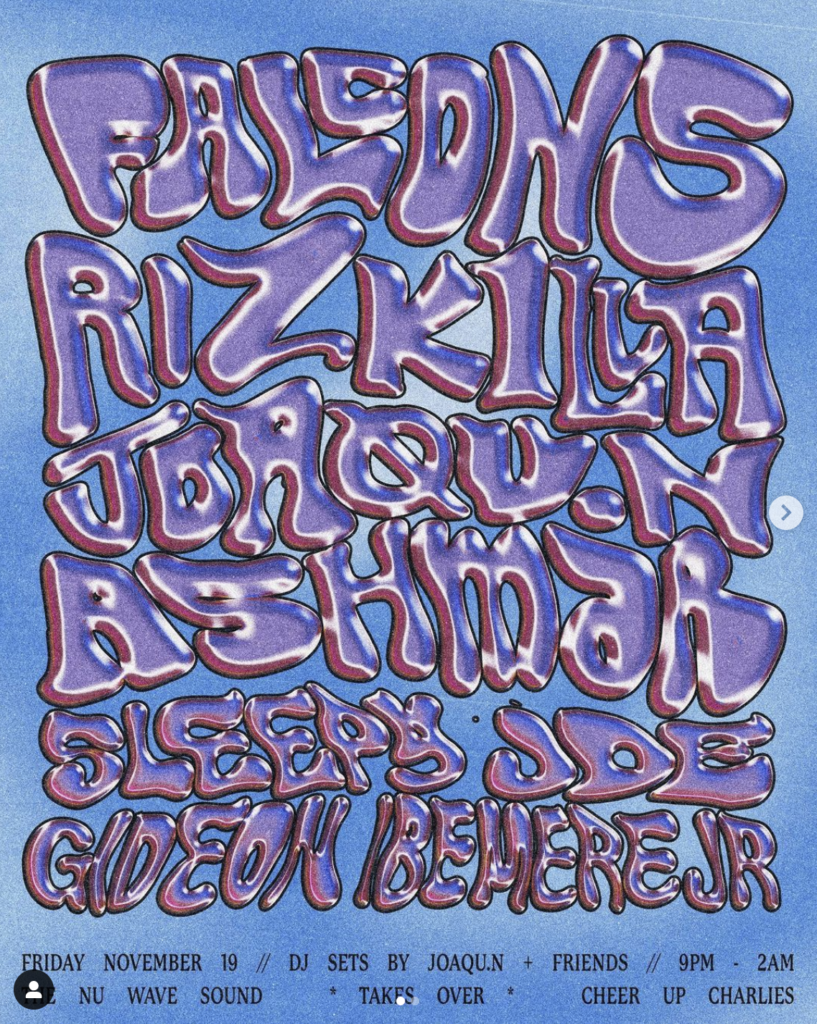 FALCONS
RIZ KILLA
JOAQU.N
ASHMAR
SLEEPY JOE
GIDEON IBEMERE JR
FRIDAY NOVEMBER 19 // DJ SETS BY JOAQU.N + FRIENDS // 9PM - 2AM
THE NU WAVE SOUND * TAKES OVER * CHEER UP CHARLIES